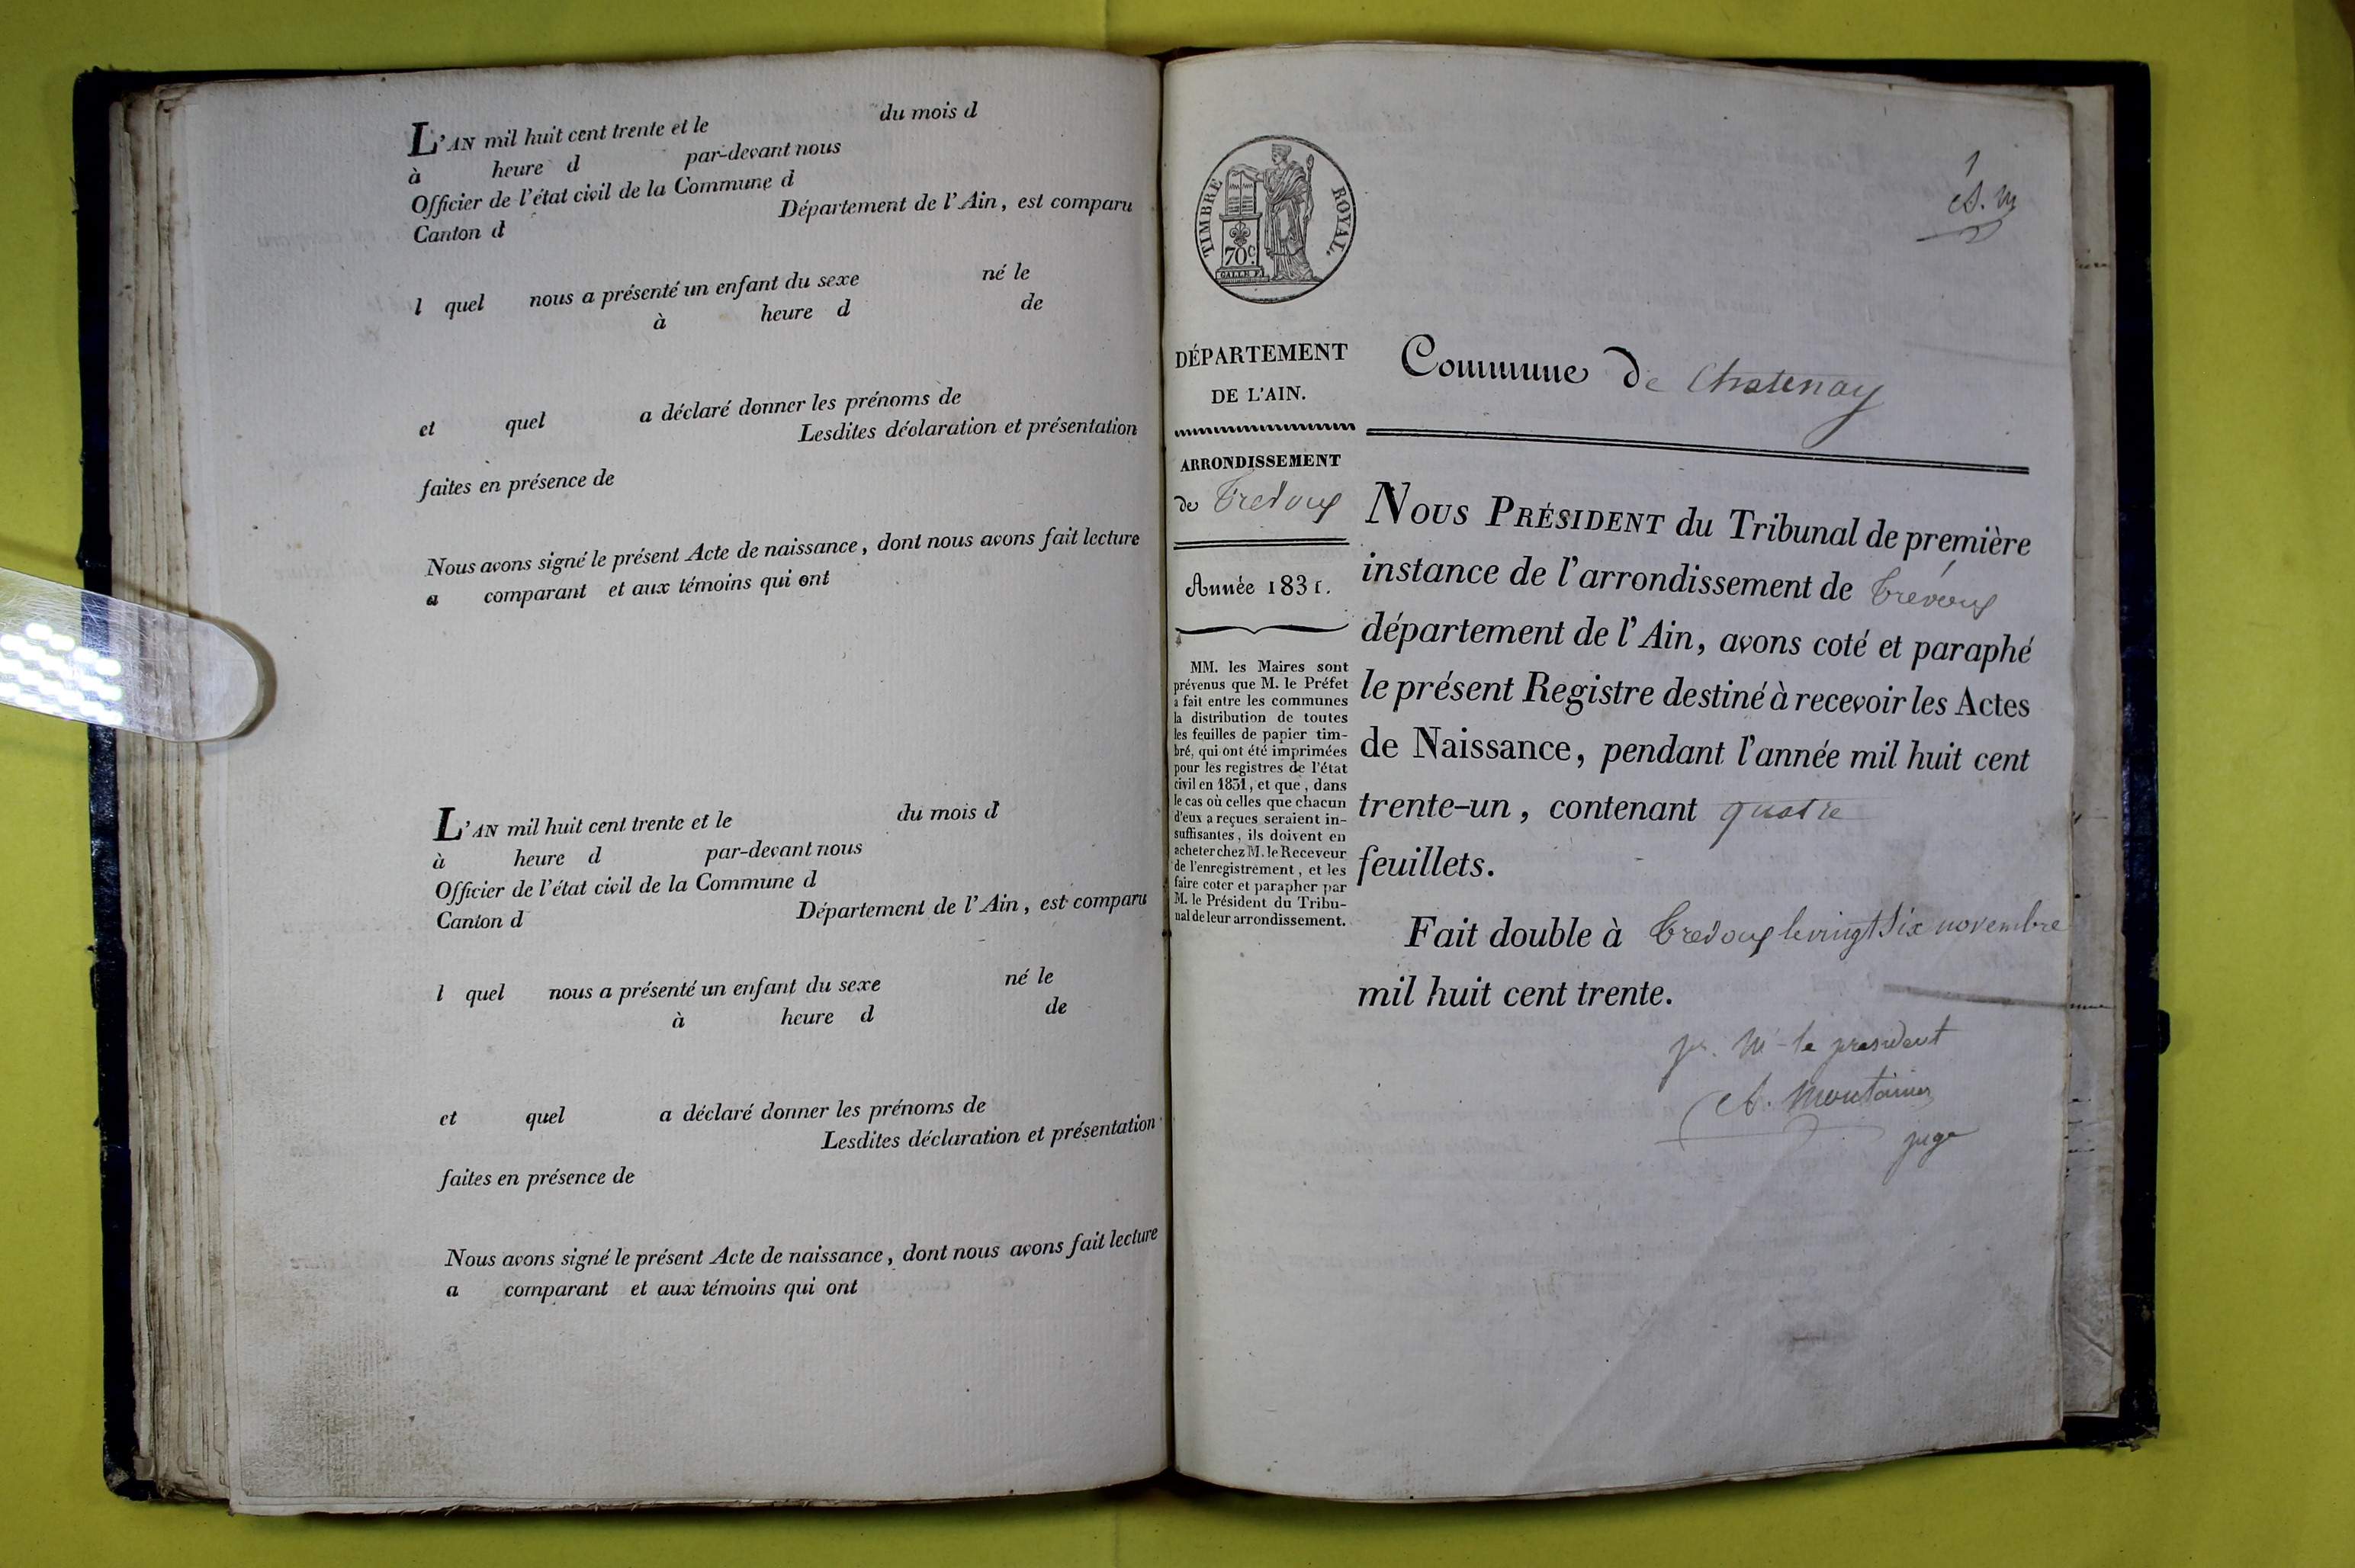 L'AN mil huit cent trente et le du mois d
à heure d par-devant nous
Officier de l'état civil de la Commune d
Canton d Département de l'Ain, est comparu
l quel nous a présenté un enfant du sexe né le
à heure d de
et quel a déclaré donner les prénoms de
Lesdites déclaration et présentation
faites en présence de
Nous avons signé le présent Acte de naissance, dont nous avons fait lecture
a comparant et aux témoins qui ont
L'AN mil huit cent trente et le du mois d
à heure d par-devant nous
Officier de l'état civil de la Commune d
Canton d Département de l'Ain, est comparu
l quel nous a présenté un enfant du sexe né le
à heure d de
et quel a déclaré donner les prénoms de
Lesdites déclaration et présentation
faites en présence de
Nous avons signé le présent Acte de naissance, dont nous avons fait lecture
a comparant et aux témoins qui ont
1
A. M
TIMBRE ROYAL.
70 c.
DÉPARTEMENT
DE L'AIN.
ARRONDISSEMENT
de Trevoux
Année 1831.
MM. les Maires sont
prévenus que M. le Préfet
a fait entre les communes
la distribution de toutes
les feuilles de papier tim-
bré, qui ont été imprimées
pour les registres de l'état
civil en 1831, et que, dans
le cas où celles que chacun
d'eux a reçues seraient in-
suffisantes, ils doivent en
acheter chez M. le Receveur
de l'enregistrement, et les
faire coter et parapher par
M. le Président du Tribu-
nal de leur arrondissement.
Commune de Chatenay
NOUS PRÉSIDENT du Tribunal de première
instance de l'arrondissement de Trévoux
département de l'Ain, avons coté et paraphé
le présent Registre destiné à recevoir les Actes
de Naissance, pendant l'année mil huit cent
trente-un, contenant quatre
feuillets.
Fait double à Trevoux le vingt six novembre
mil huit cent trente.
pr. Mr le president
juge